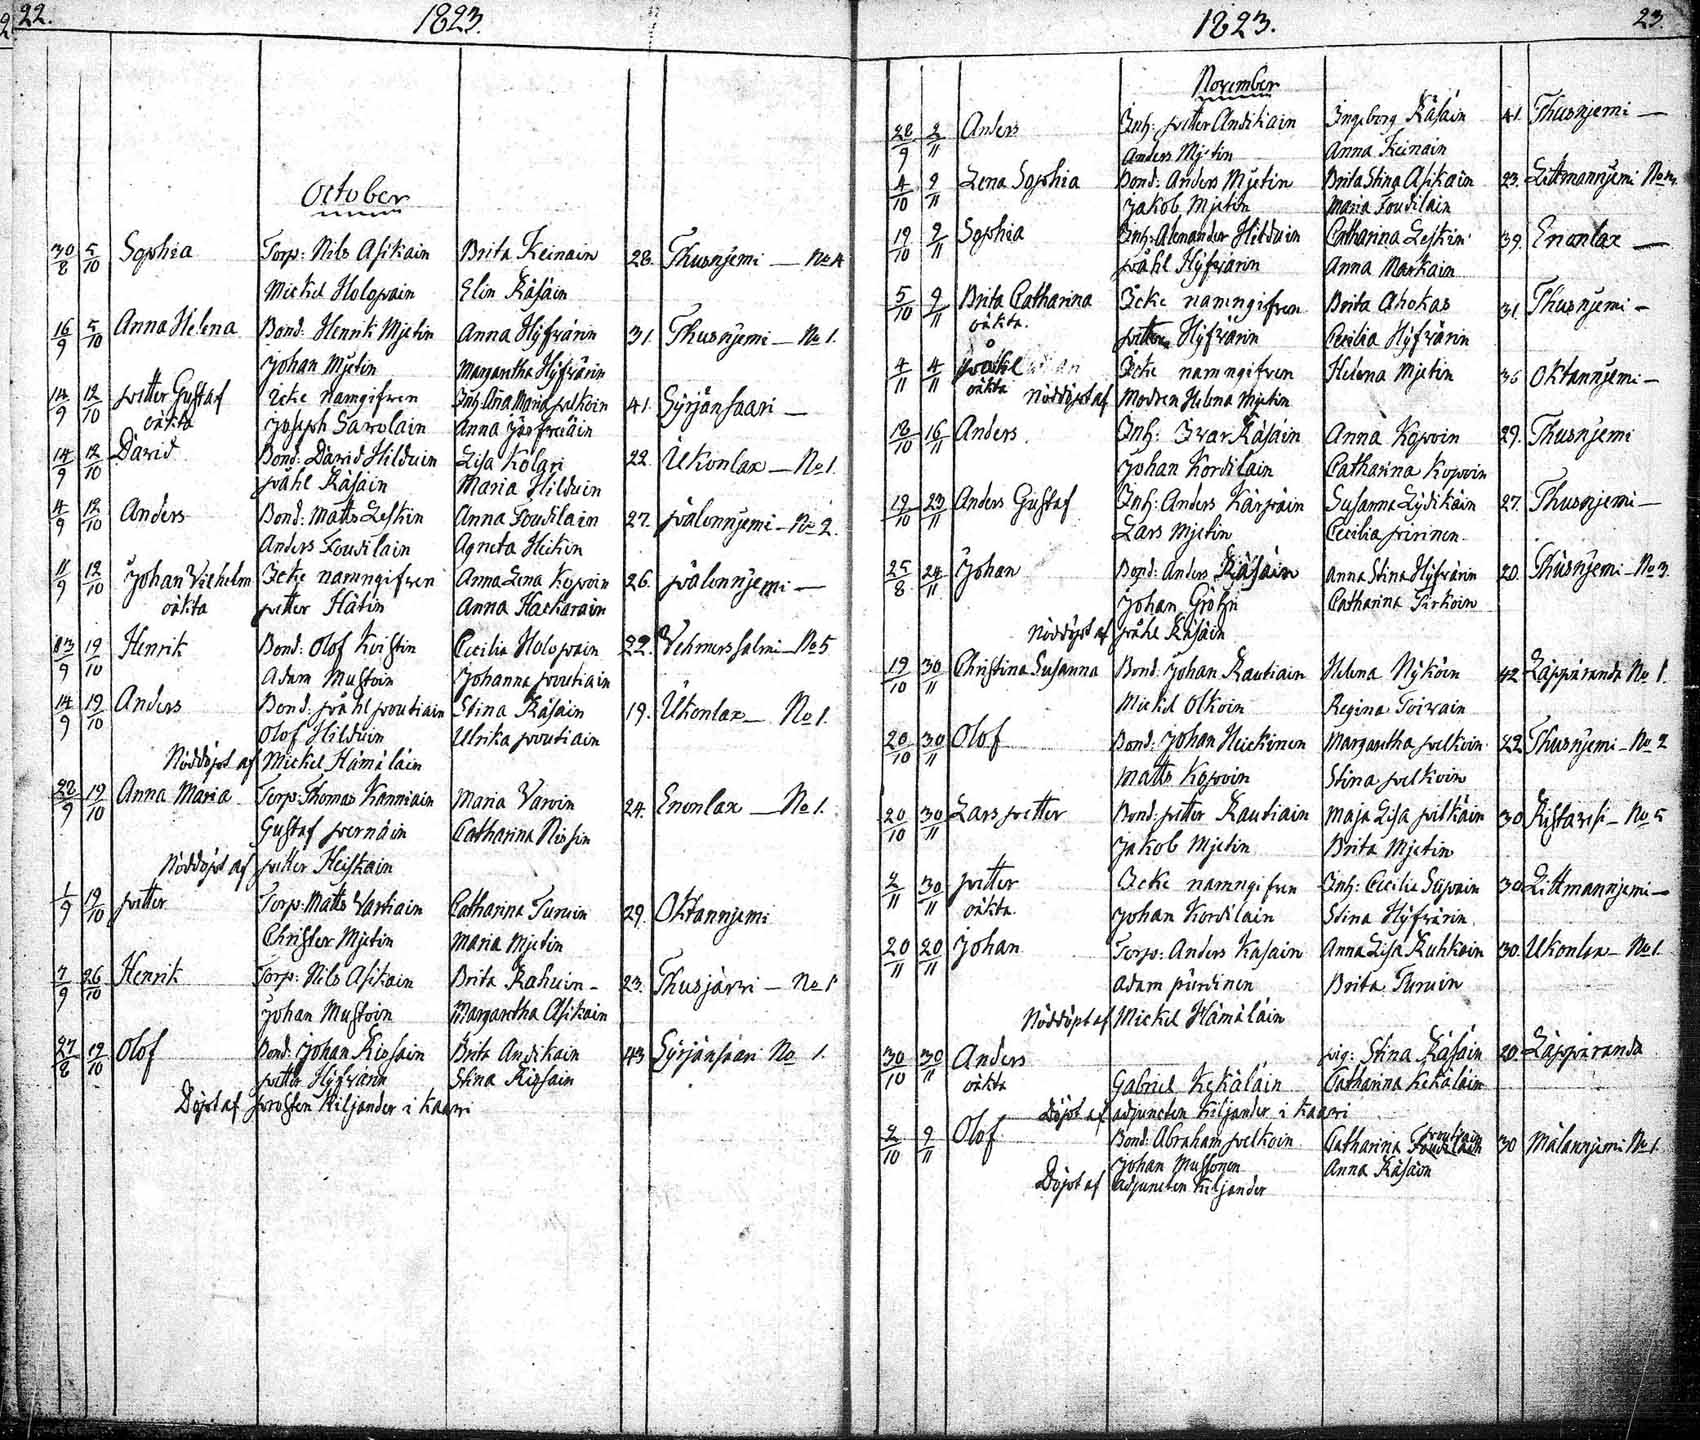 22.
1823.
October
30/8 5/10 Sophia Torp: Nils Asikain Brita Keinain 28. Thusnjemi — No 4
Mickel Holopain Elin Räsäin
16/9 5/10 Anna Helena Bond: Henrik Mjetin Anna Hyfvärin 31. Thusnjemi — No 1.
Johan Mjetin Margaretha Hyfvärin
14/9 12/10 Petter Gustaf Icke namgifven Inh: Lina Maria Pelkoin 41. Syrjänsaari —
oäkta Joseph Savolain Anna
14/9 12/10 David Bond: David Hilduin Lisa Kolari 22. Ukonlax — No 1.
Påhl Räsäin Maria Hilduin
4/9 12/10 Anders Bond: Matts Leskin Anna Toudilain 27. Pälonnjemi — No 2.
Anders Toudilain Agneta Heikin
11/9 12/10 Johan Vilhelm Icke namngifven Anna Lena Kopoin 26. Pälonnjemi —
oäkta Petter Hätin Anna Haskarain
13/9 19/10 Henrik Bond: Olof Koistin Cecilia Holopain 22. Vehmersalmi — No 5
Adam Mustoin Johanna Poutiain
14/9 19/10 Anders Bond: Påhl Poutiain Stina Räsäin 19. Ukonlax — No 1.
Olof Hilduin Ulrika Poutiain
Nöddöpt af Mickel Hämäläin
22/9 19/10 Anna Maria Torp: Thomas Kanniain Maria Varoin 24. Enonlax — No 1.
Gustaf Pernäin Catharina Rissin
Nöddöpt af Petter Heiskain
1/9 19/10 Petter Torp: Matts Vartiain Catharina Turuin 29. Oktannjemi
Christer Mjetin Maria Mjetin
7/9 26/10 Henrik Torp: Nils Asikain Brita Rahuin — 23. Thusjärvi — No 1
Johan Mustoin Margaretha Asikain
27/8 19/10 Olof Bond: Johan Ripsain Brita Andikain 43 Syrjänsaari No 1.
Petter Hyfvärin Stina Ripsain
Döpt af Prosten Kiljander i Kaavi
1823.
23.
November
28/9 2/11 Anders Inh: Petter Andikain Ingeborg Räsäin 41. Thusnjemi —
Anders Mjetin Anna Keinain
4/10 9/11 Lena Sophia Bond: Anders Mjetin Brita Stina Asikain 23. Littmannjemi No
Jakob Mjetin Maria Toudilain
19/10 9/11 Sophia Inh: Alexander Hilduin Catharina Leskin 39. Enonlax —
Påhl Hyfvärin Anna Markain
5/10 9/11 Brita Catharina Icke namngifven Brita Ahokas 31. Thusnjemi —
oäkta. Petter Hyfvärin Cecilia Hyfvärin
4/11 4/11 Påhl Icke namngifven Helena Mjetin 36 Oktannjemi —
oäkta Nöddöpt af Modren Helena Mjetin
18/10 16/11 Anders Inh: Ivar Räsäin Anna Kopoin 29. Thusnjemi
Johan Kordilain Catharina Kopoin
19/10 23/11 Anders Gustaf Inh: Anders Kärpäin Susanna Lydikäin 27. Thusnjemi —
Lars Mjetin Cecilia Pirinen
25/8 24/11 Johan Bond: Anders Räsäin Anna Stina Hyfvärin 20. Thusnjemi — No 3
Johan Gröhn Catharina Tirkoin
Nöddöpt af Påhl Räsäin
19/10 30/11 Christina Susanna Bond: Johan Rautiain Helena Nyköin 42 Läppäranda No 1.
Mickel Olkoin Regina Toivain
20/10 30/11 Olof Bond: Johan Heickinen Margaretha Pelkoin 22 Thusnjemi — No 2
Matts Kopoin Stina Pelkoin
20/10 30/11 Lars Petter Bond: Petter Rautiain Maja Lisa Pitkäin 30 Ristavesi — No 5
Jakob Mjetin Brita Mjetin
2/11 30/11 Petter Icke namngifven Inh: Cecilia 30. Littmannjemi —
oäkta. Johan Kordilain Stina Hyfvärin
20/11 20/11 Johan Torp: Anders Kasain Anna Lisa Ruhkain 30. Ukonlax — No 1.
Adam Purdinen Brita Turuin
Nöddöpt af Mickel Hämäläin
30/10 30/11 Anders pig: Stina Räsäin 20. Läppäranda
oäkta Gabriel Kekäläin Catharina Kekäläin
Döpt af adjuncten Kiljander i Kaavi
2/10 9/11 Olof Bond: Abraham Pelkoin Catharina Poutiain 30 Mälannjemi No 1.
Johan Mustonen Anna Räsäin
Döpt af Adjuncten Kiljander